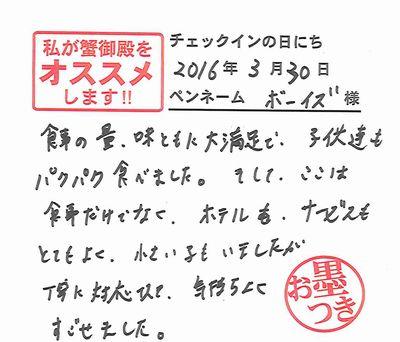 私が蟹御殿を
オススメ
します!!
チェックインの日にち
2016年3月30日
ペンネーム ボーイズ 様
食事の量、味ともに大満足で、子供達も
パクパク食べました。そして、ここは
食事だけでなく、ホテルも、サービスも
とてもよく、小さい子もいましたが
丁寧に対応ひて、気持ちよく
すごせました。
お墨
つき